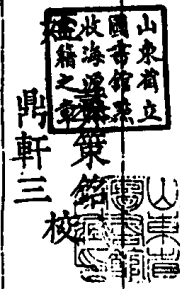 山東省立
圖書館點
收海源閣
書籍之章
山東省
策銘 校
鼎軒三